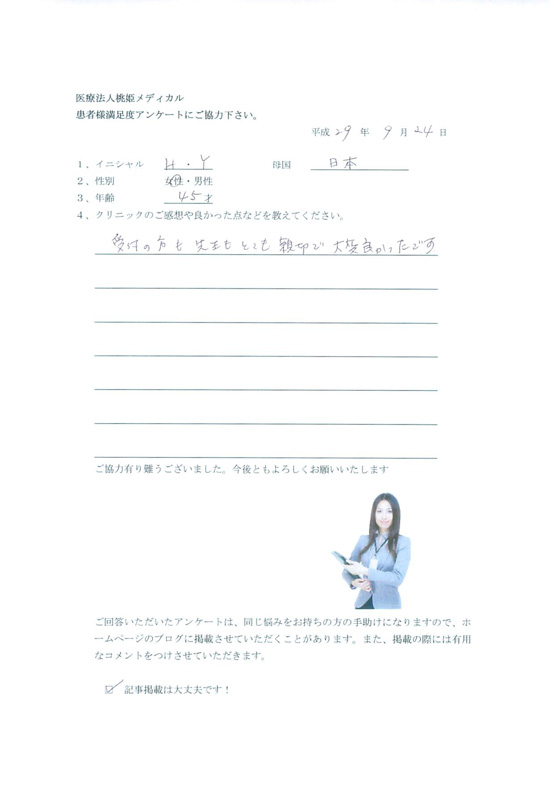 医療法人桃姫メディカル
患者様満足度アンケートにご協力下さい。
平成 29 年 9 月 24 日
1、イニシャル H・Y 母国 日本
2、性別 女性・男性
3、年齢 45才
4、クリニックのご感想や良かった点などを教えてください。
受付の方も 先生も とても 親切で 大変良かったです
ご協力有り難うございました。今後ともよろしくお願いいたします
ご回答いただいたアンケートは、同じ悩みをお持ちの方の手助けになりますので、ホ
ームページのブログに掲載させていただくことがあります。また、掲載の際には有用
なコメントをつけさせていただきます。
☑ 記事掲載は大丈夫です！